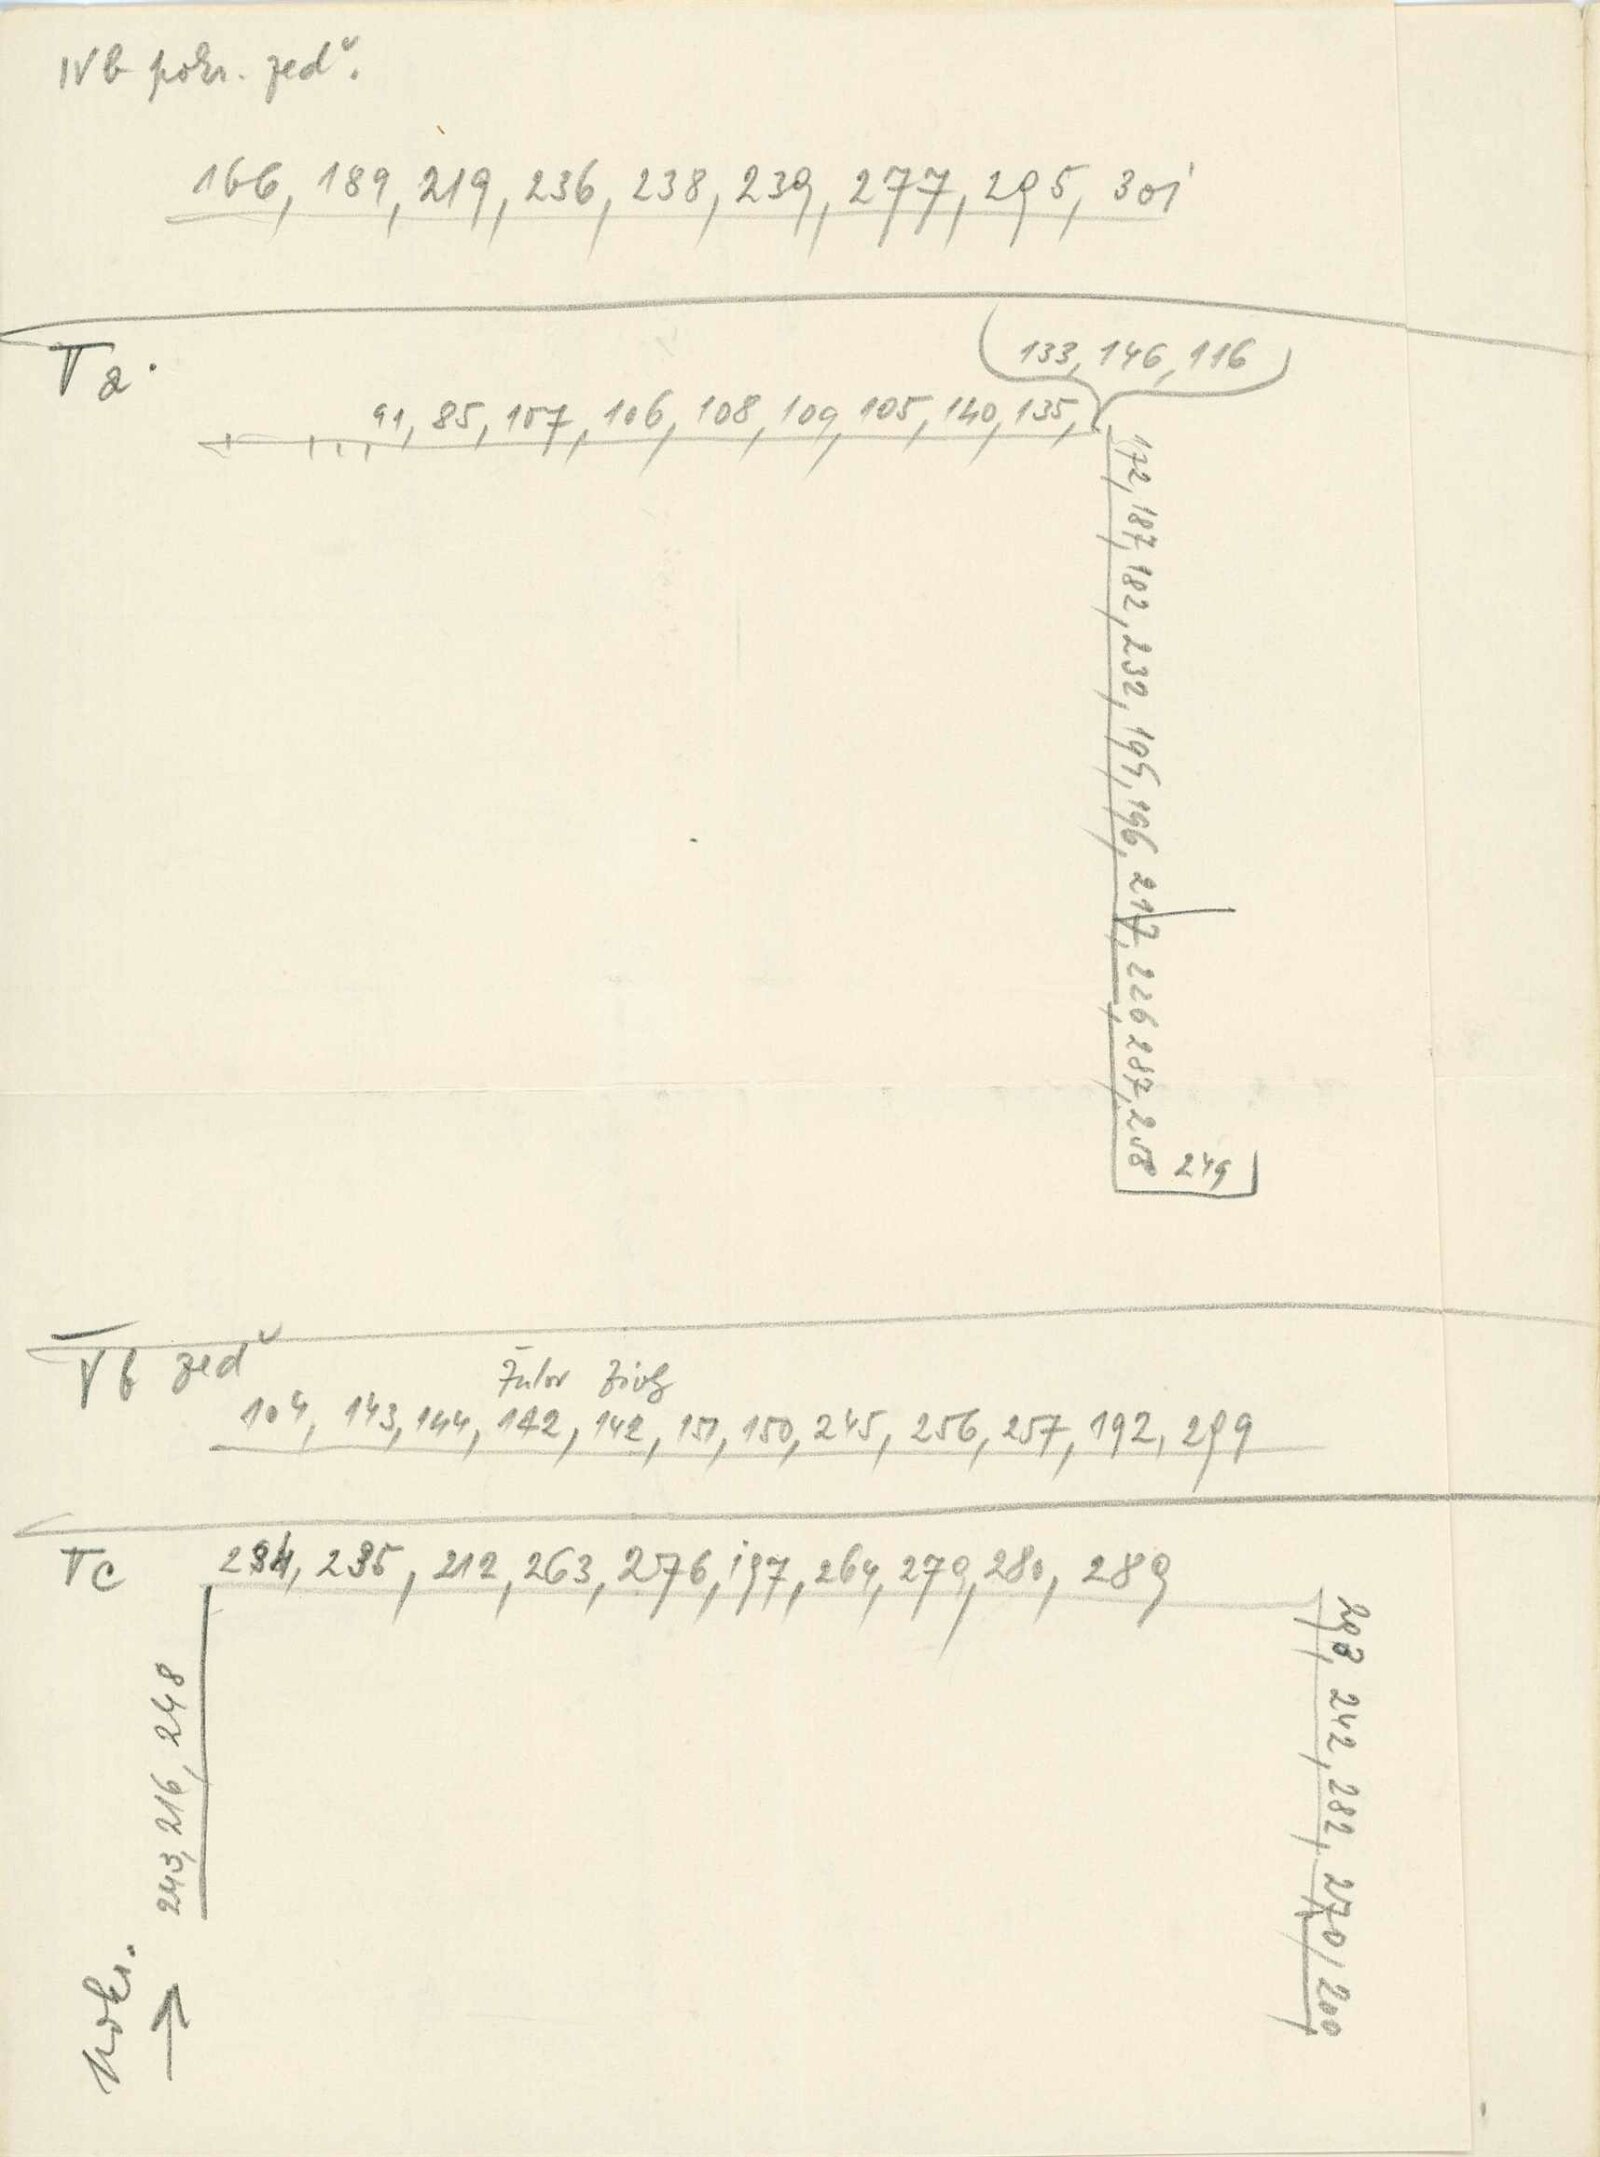 IVb pokr. zeď.
166, 189, 219, 236, 238, 239, 277, 295, 301
Va.
133, 146, 116
91, 85, 107, 106, 108, 109, 105, 140, 135,
172, 187, 182, 232, 195, 196, 217, 226 287, 258
249
Vb zeď
104, 143, 144, 142, 142, 151, 150, 245, 256, 257, 192, 299
Vc
234, 235, 212, 263, 276, 197, 264, 279, 280, 289
298, 242, 282, 270, 200
243, 216, 248
pokr.